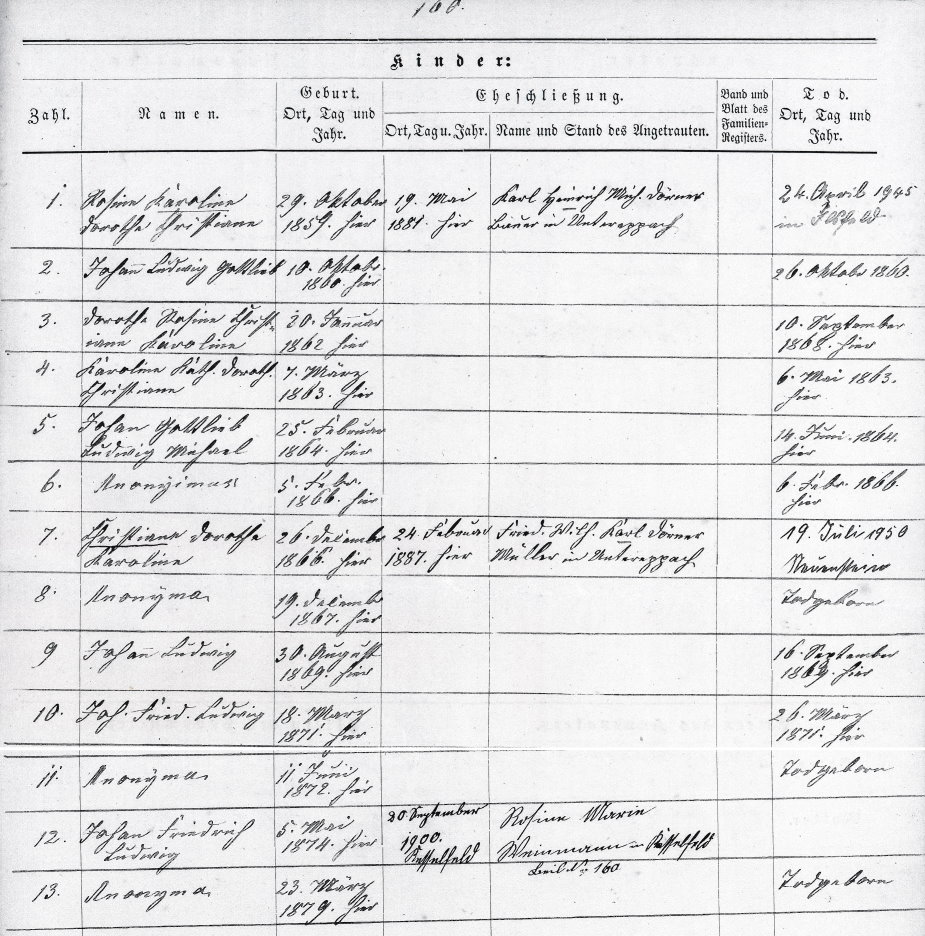 160.
Kinder:
Zahl.
Namen.
Geburt.
Ort, Tag und
Jahr.
Eheschließung.
Ort, Tag u. Jahr.
Name und Stand des Angetrauten.
Band und
Blatt des
Familien-
Registers.
Tod.
Ort, Tag und
Jahr.
1. Rosine Karoline 29. Oktober 19. Mai Karl Heinrich Mich. Dörner 24. April 1945
Dorothe Christiane 1859. hier 1881. hier Bauer in Untereppach in Ilsfeld
2. Johann Ludwig Gottlieb 10. Oktobr. 26. Oktober 1860.
1860. hier
3. Dorothe Rosine Christ- 20. Januar 10. September
iane Karoline 1862 hier 1868. hier
4. Karoline Kath. Doroth. 7. März 6. Mai 1863.
Christiane 1863. hier hier
5. Johan Gottlieb 25. Februar 14. Juni. 1864.
Ludwig Michael 1864. hier hier
6. Anonymus 5. Febr. 6. Febr. 1866.
1866. hier hier
7. Christiane Dorothe 26. Dezember 24. Februar Fried. Wilh. Karl Dörner 19. Juli 1950
Karoline 1866. hier 1887. hier Müller in Untereppach Neuenstein
8. Anonyma 19. Dezembr Todgeborn
1867. hier
9 Johann Ludwig 30. August 16. September
1869. hier 1869. hier
10. Joh. Fried. Ludwig 18. März 26. März
1871. hier 1871. hier
11. Anonyma 11 Juni Todgeborn
1872. hier
12. Johan Friedrich 5. Mai 20. September Rosine Marie
Ludwig 1874. hier 1900. Weinmann - Kesselfeld
Kesselfeld Beil. No 160
13. Anonyma 23. März Todgeborn
1879. hier